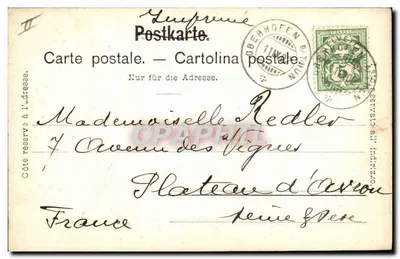 II
Imprimé
Postkarte.
Carte postale. — Cartolina postale.
Nur für die Adresse.
OBERHOFEN B/THUN
Côté réservé à l'adresse.
Mademoiselle Redler
7 Avenue des Vignes
Plateau d'Avron
Seine & Oise
France